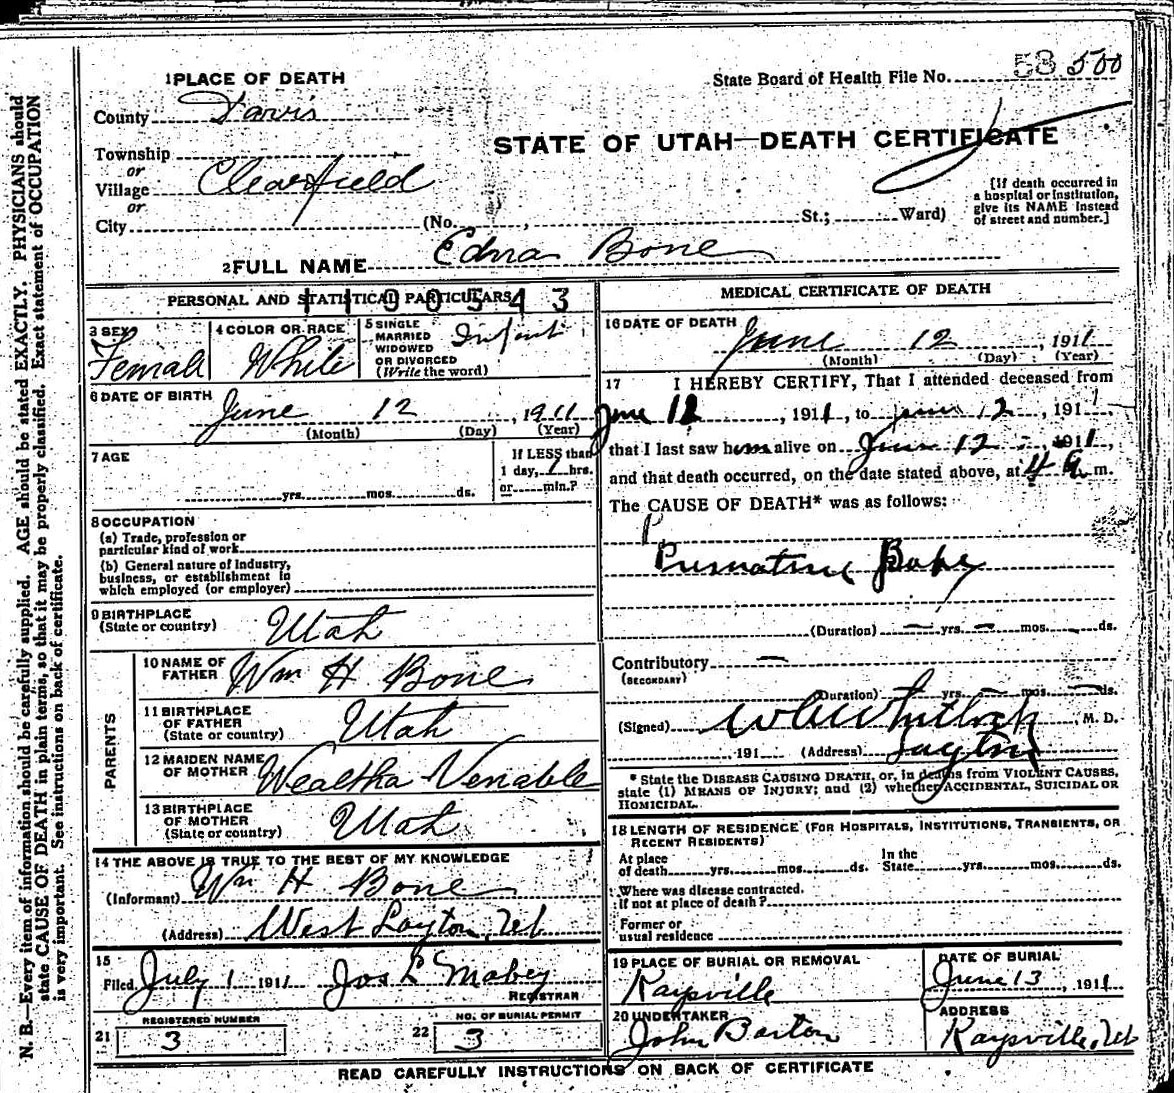 N. B.—Every item of information should be carefully supplied. AGE should be stated EXACTLY. PHYSICIANS should
state CAUSE OF DEATH in plain terms, so that it may be properly classified. Exact statement of OCCUPATION
is very important. See instructions on back of certificate.
1 PLACE OF DEATH
State Board of Health File No. 53 500
County Davis
STATE OF UTAH—DEATH CERTIFICATE
Township
or
Village Clearfield
or
City (No. , St.; Ward)
[If death occurred in
a hospital or institution,
give its NAME instead
of street and number.]
2 FULL NAME Edna Bone
PERSONAL AND STATISTICAL PARTICULARS
1190543
3 SEX Female
4 COLOR OR RACE White
5 SINGLE
MARRIED
WIDOWED
OR DIVORCED
(Write the word)
Infant
6 DATE OF BIRTH
June 12, 1911
(Month) (Day) (Year)
7 AGE
yrs. mos. ds.
If LESS than
1 day, 1 hrs.
or min.?
8 OCCUPATION
(a) Trade, profession or
particular kind of work
(b) General nature of industry,
business, or establishment in
which employed (or employer)
9 BIRTHPLACE
(State or country) Utah
PARENTS
10 NAME OF
FATHER Wm H Bone
11 BIRTHPLACE
OF FATHER
(State or country) Utah
12 MAIDEN NAME
OF MOTHER Wealtha Venable
13 BIRTHPLACE
OF MOTHER
(State or country) Utah
14 THE ABOVE IS TRUE TO THE BEST OF MY KNOWLEDGE
(Informant) Wm H Bone
(Address) West Layton, Ut
15
Filed July 1 1911 Jos L Mabey
REGISTRAR
REGISTERED NUMBER
21 3
NO. OF BURIAL PERMIT
22 3
MEDICAL CERTIFICATE OF DEATH
16 DATE OF DEATH
June 12, 1911
(Month) (Day) (Year)
17 I HEREBY CERTIFY, That I attended deceased from
June 12, 1911, to June 12, 1911,
that I last saw him alive on June 12, 1911,
and that death occurred, on the date stated above, at 4 a m.
The CAUSE OF DEATH* was as follows:
Premature Baby
(Duration) — yrs. — mos. — ds.
Contributory —
(SECONDARY)
(Duration) — yrs. — mos. — ds.
(Signed) Whitlock M. D.
191 (Address) Layton
* State the DISEASE CAUSING DEATH, or, in deaths from VIOLENT CAUSES,
state (1) MEANS OF INJURY; and (2) whether ACCIDENTAL, SUICIDAL OR
HOMICIDAL.
18 LENGTH OF RESIDENCE (FOR HOSPITALS, INSTITUTIONS, TRANSIENTS, OR
RECENT RESIDENTS)
At place
of death yrs. mos. ds.
In the
State yrs. mos. ds.
Where was disease contracted,
if not at place of death?
Former or
usual residence
19 PLACE OF BURIAL OR REMOVAL
Kaysville
DATE OF BURIAL
June 13, 1911
20 UNDERTAKER
John Barton
ADDRESS
Kaysville, Ut
READ CAREFULLY INSTRUCTIONS ON BACK OF CERTIFICATE